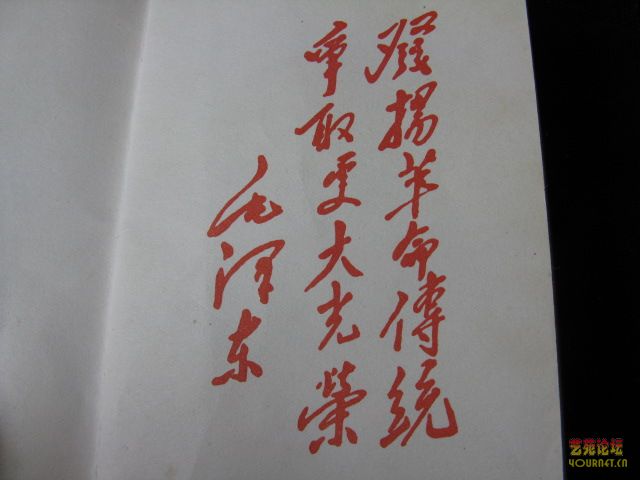 發揚革命傳統
爭取更大光榮
毛泽东
艺苑论坛
YOURNET.CN